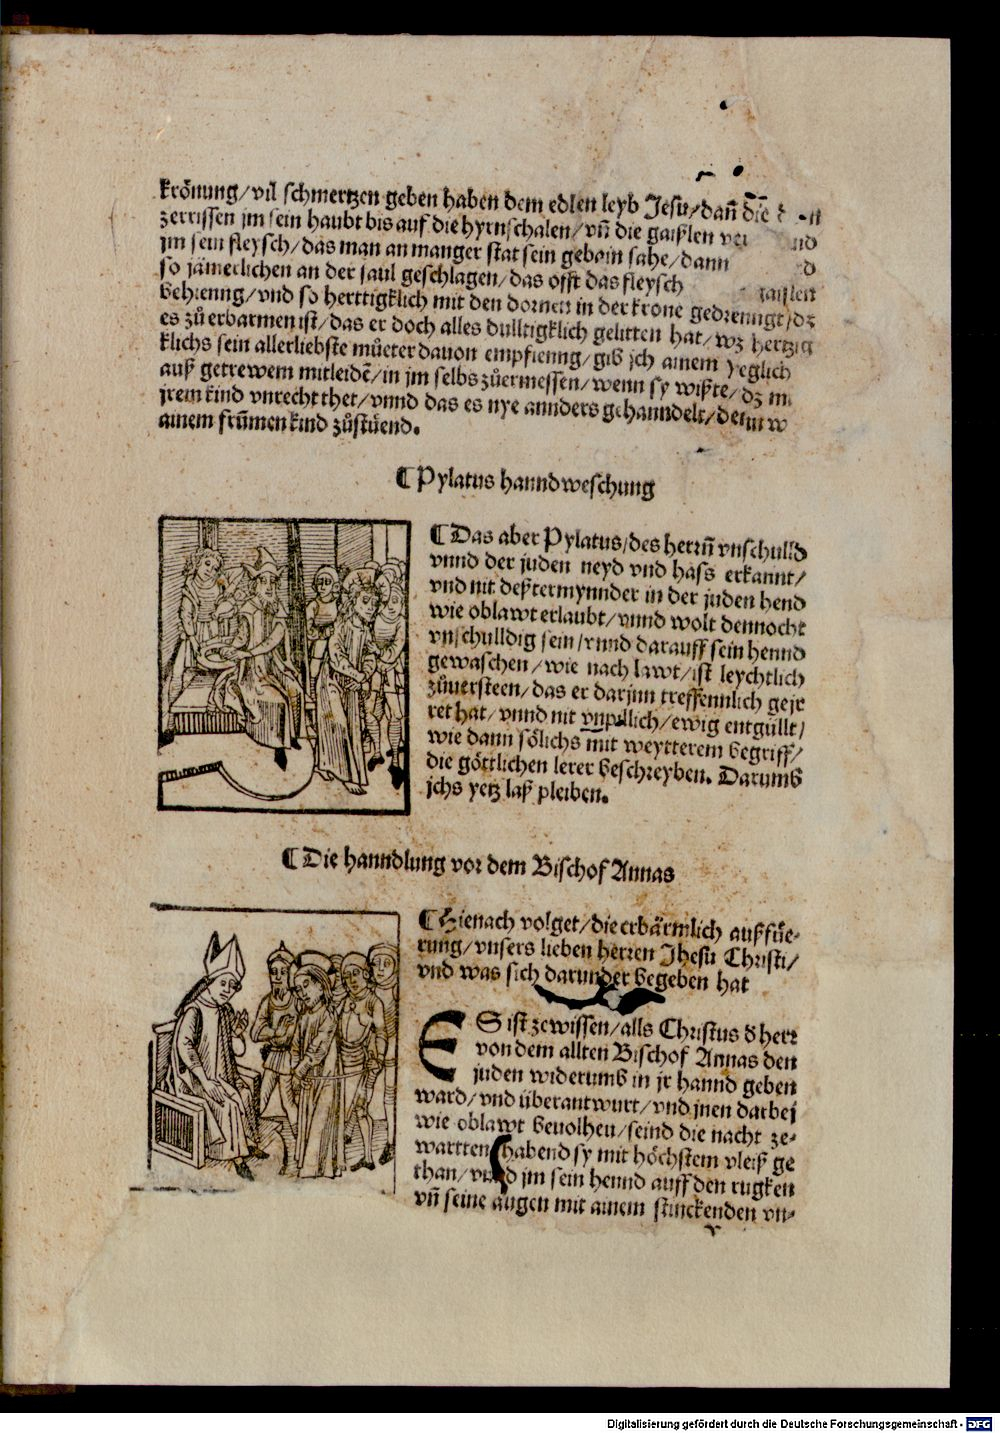 krönung/vil schmertzen geben haben dem edlen leyb Jesu/dañ die
zerrissen jm sein haubt bis auf die hyrnschalen/vñ die gaißlen
jm sein fleysch/das man an manger stat sein gebain sahe/dann
so jämerlichen an der saul geschlagen/das offt das fleysch
behienng/vnd so herttigklich mit den dornen in der krone gedrenngt/dz
es zů erbarmen ist/das er doch alles dulltigklich gelitten hat/wz hertzig
klichs sein allerliebste můeter dauon empfienng/gib jch ainem yeglich
auß getrewem mitleidē/in jm selbs zůermessen/wenn sy wißte/dz
jrem kind vnrecht thet/vnnd das es nye annders gehanndelt/denn
ainem frūmen kind zůstüend.
¶ Pylatus hanndweschung
¶ Das aber Pylatus/des herrñ vnschulld
vnnd der juden neyd vnd hass erkannt/
vnd nit deßtermynnder in der juden hend
wie oblawt erlaubt/vnnd wolt dennocht
vnschulldig sein/vnnd darauff sein hennd
gewaschen/wie nach lawt/ist leychtlich
zůuersteen/das er darjnn treffennlich gejr
ret hat/vnnd nit vnpillich/ewig entgüllt/
wie dann sölichs mit weytterem begriff/
die göttlichen lerer beschreyben. Darumb
jchs yetz laß pleiben.
¶ Die hanndlung vor dem Bischof Annas
¶ Hienach volget/die erbärmlich außfüe-
rung/vnsers lieben herren Jhesu Christi/
vnd was sich darunder begeben hat
ES ist zewissen/alls Christus d herr
von dem allten Bischof Annas den
juden widerumb in jr hannd geben
ward/vnd überantwurt/vnd jnen darbej
wie oblawt beuolhen/seind die nacht ze-
wartten habend sy mit höchstem vleiß ge
than/vnnd jm sein hennd auff den rugken
vñ seine augen mit ainem stinckenden vn-
Digitalisierung gefördert durch die Deutsche Forschungsgemeinschaft - DFG